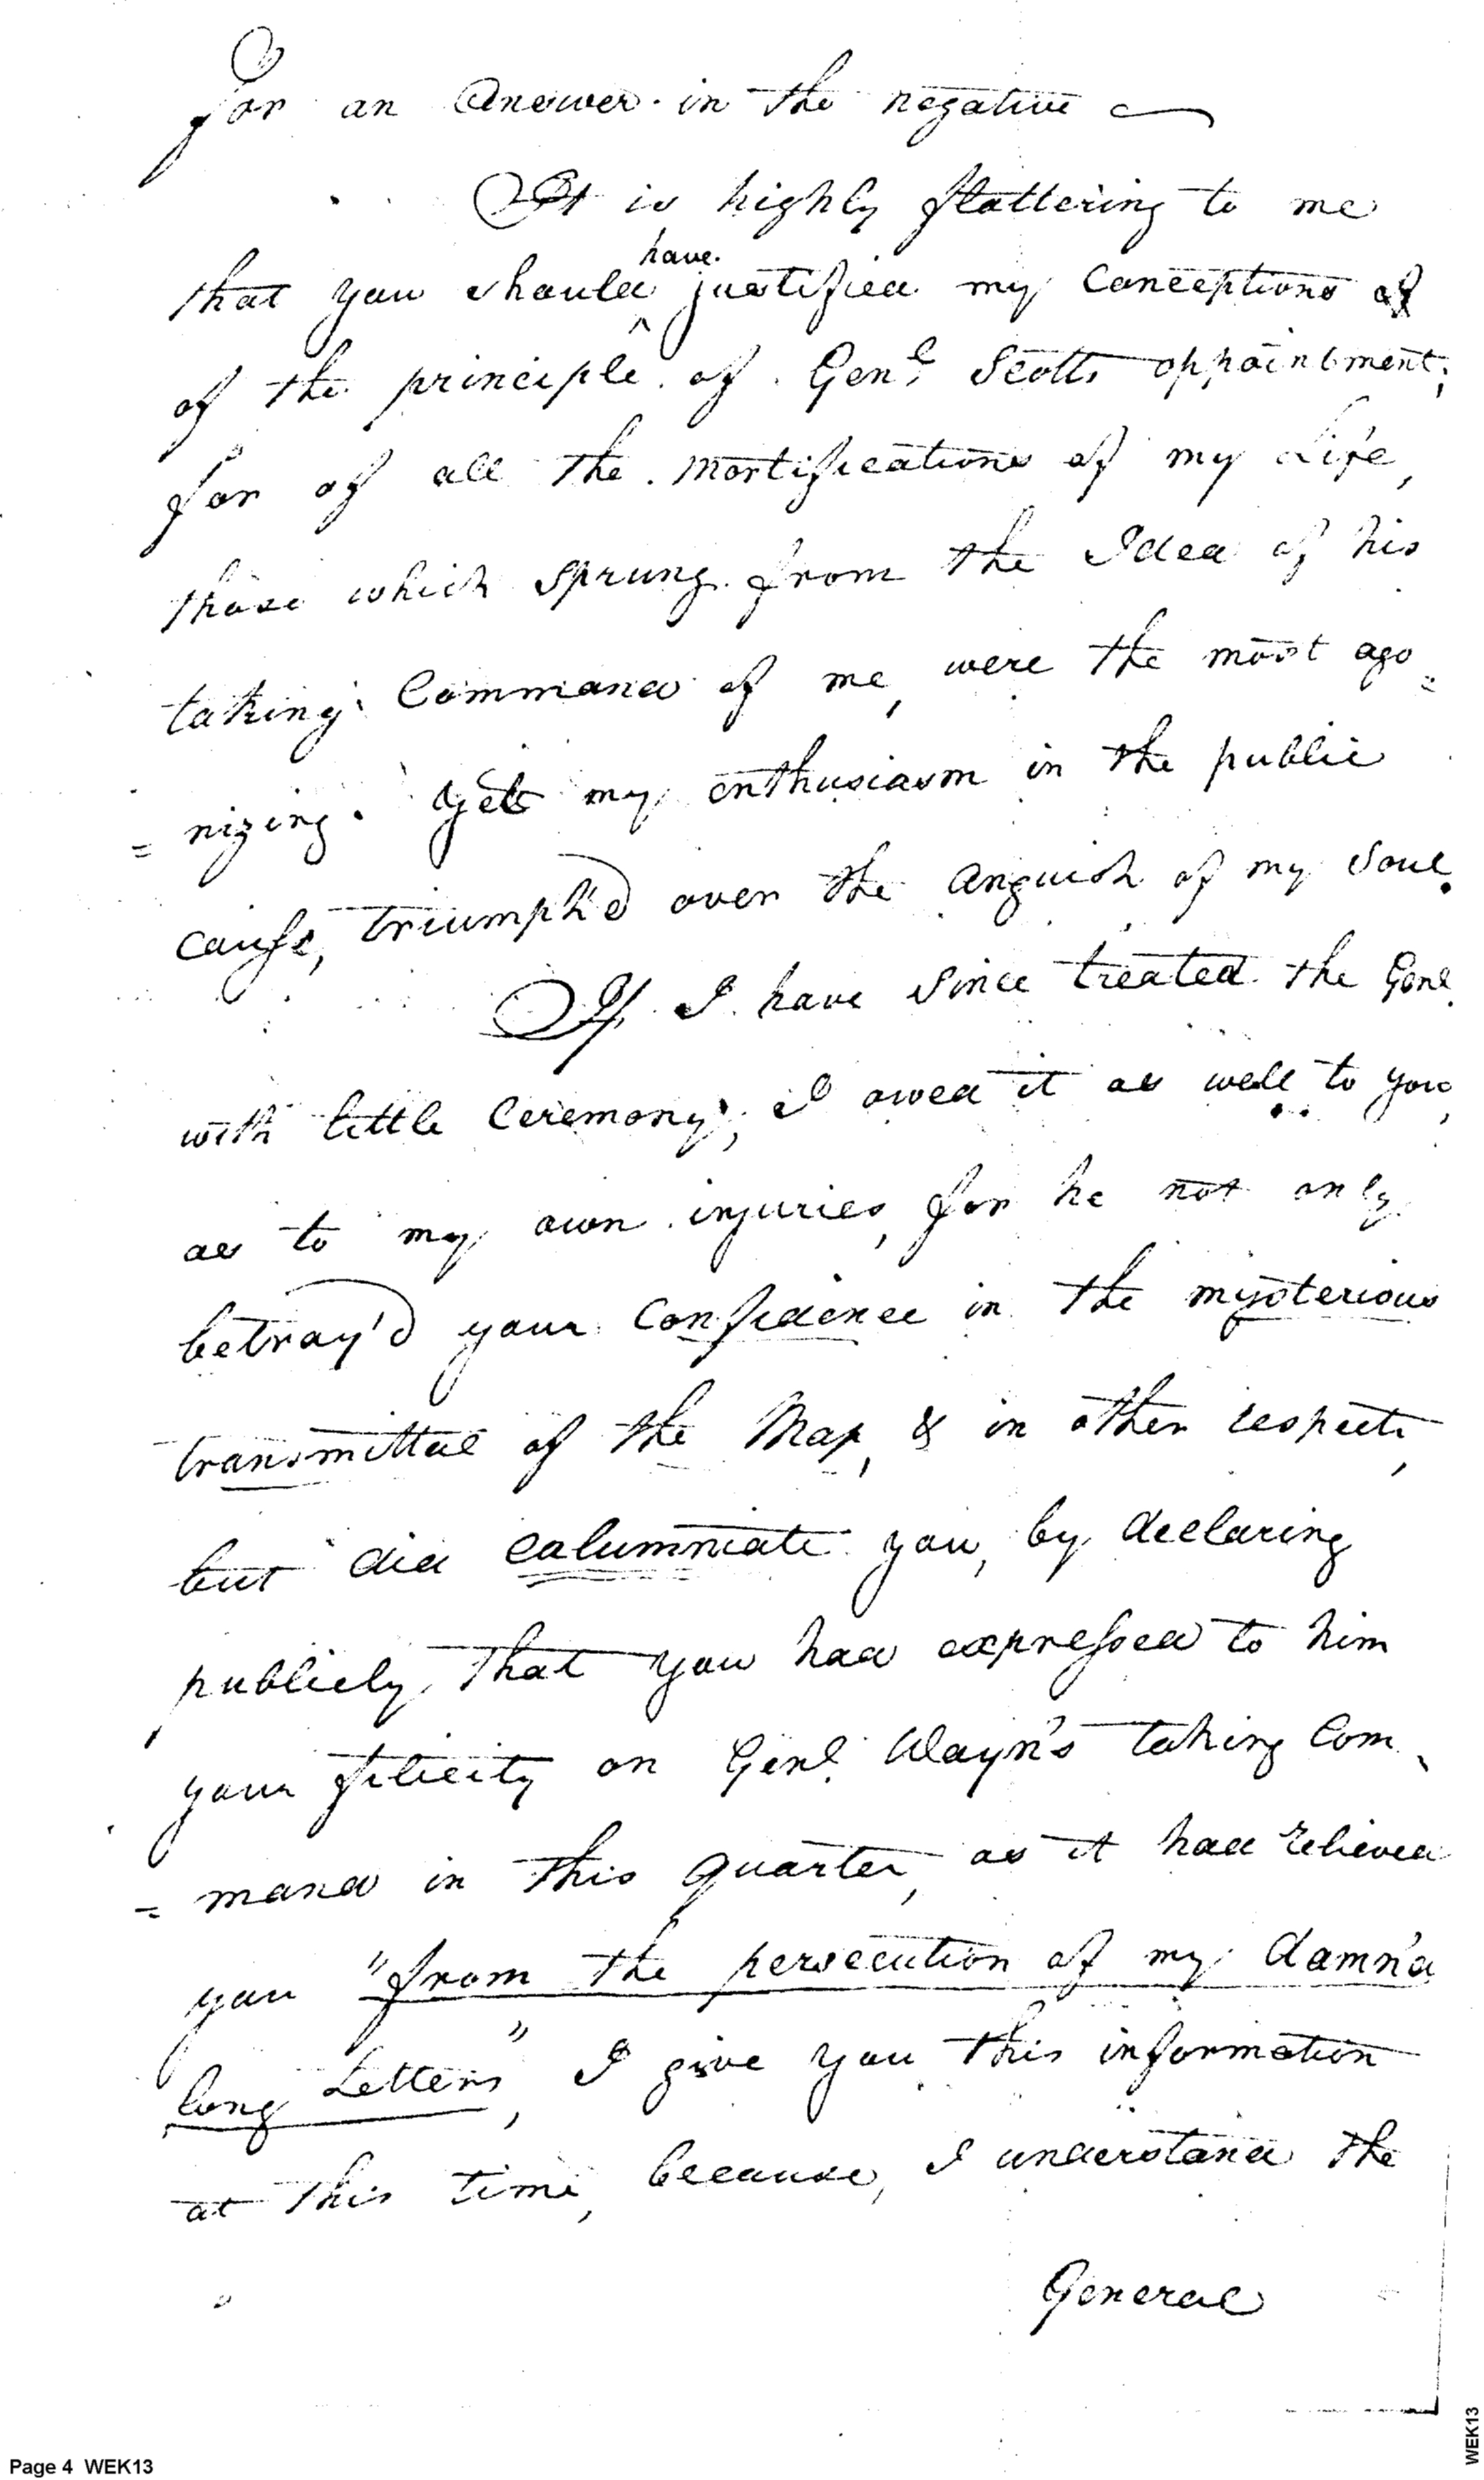 for an Answer in the negative
It is highly flattering to me
have
that you should justified my Conceptions of
of the principle of Genl Scotts appointment;
for of all the mortifications of my Life,
those which sprung from the Idea of his
taking Command of me, were the most ago=
=nizing. Yet my enthusiasm in the public
cause, triumph'd over the anguish of my Soul.
If I have since treated the Genl.
with little Ceremony, I owed it as well to you,
as to my own injuries, for he not only
betray'd your Confidence in the mysterious
transmittal of the Map, & in other respects,
but did calumniate you, by declaring
publicly, that you had expressed to him
your felicity on Genl. Wayn's taking Com
=mand in this quarter, as it had relieved
you "from the persecution of my damn'd
long Letters", I give you this information
at this time, because, I understand the
General
Page 4 WEK13
WEK13